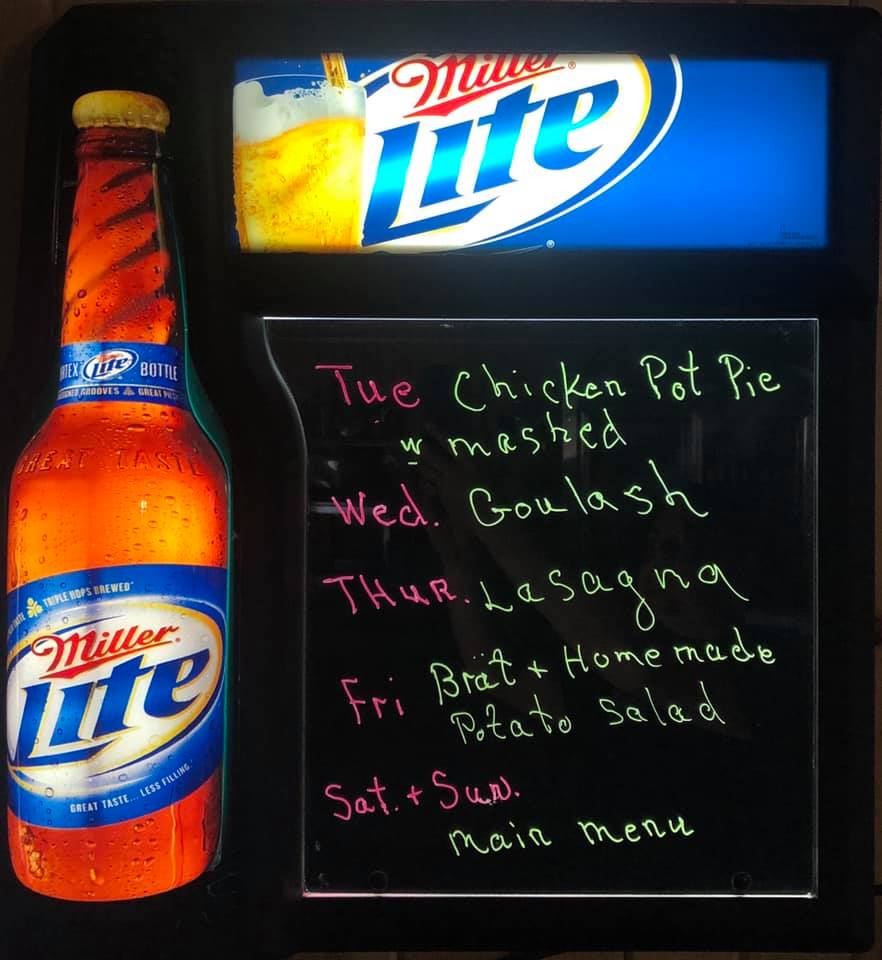 Miller
Lite
Lite
BOTTLE
GROOVES
GREAT
GREAT TASTE
TRIPLE HOPS BREWED
Miller
Lite
GREAT TASTE... LESS FILLING.
Tue Chicken Pot Pie
w mashed
Wed. Goulash
THUR. Lasagna
Fri Brät + Homemade
Potato Salad
Sat. + Sun.
main menu